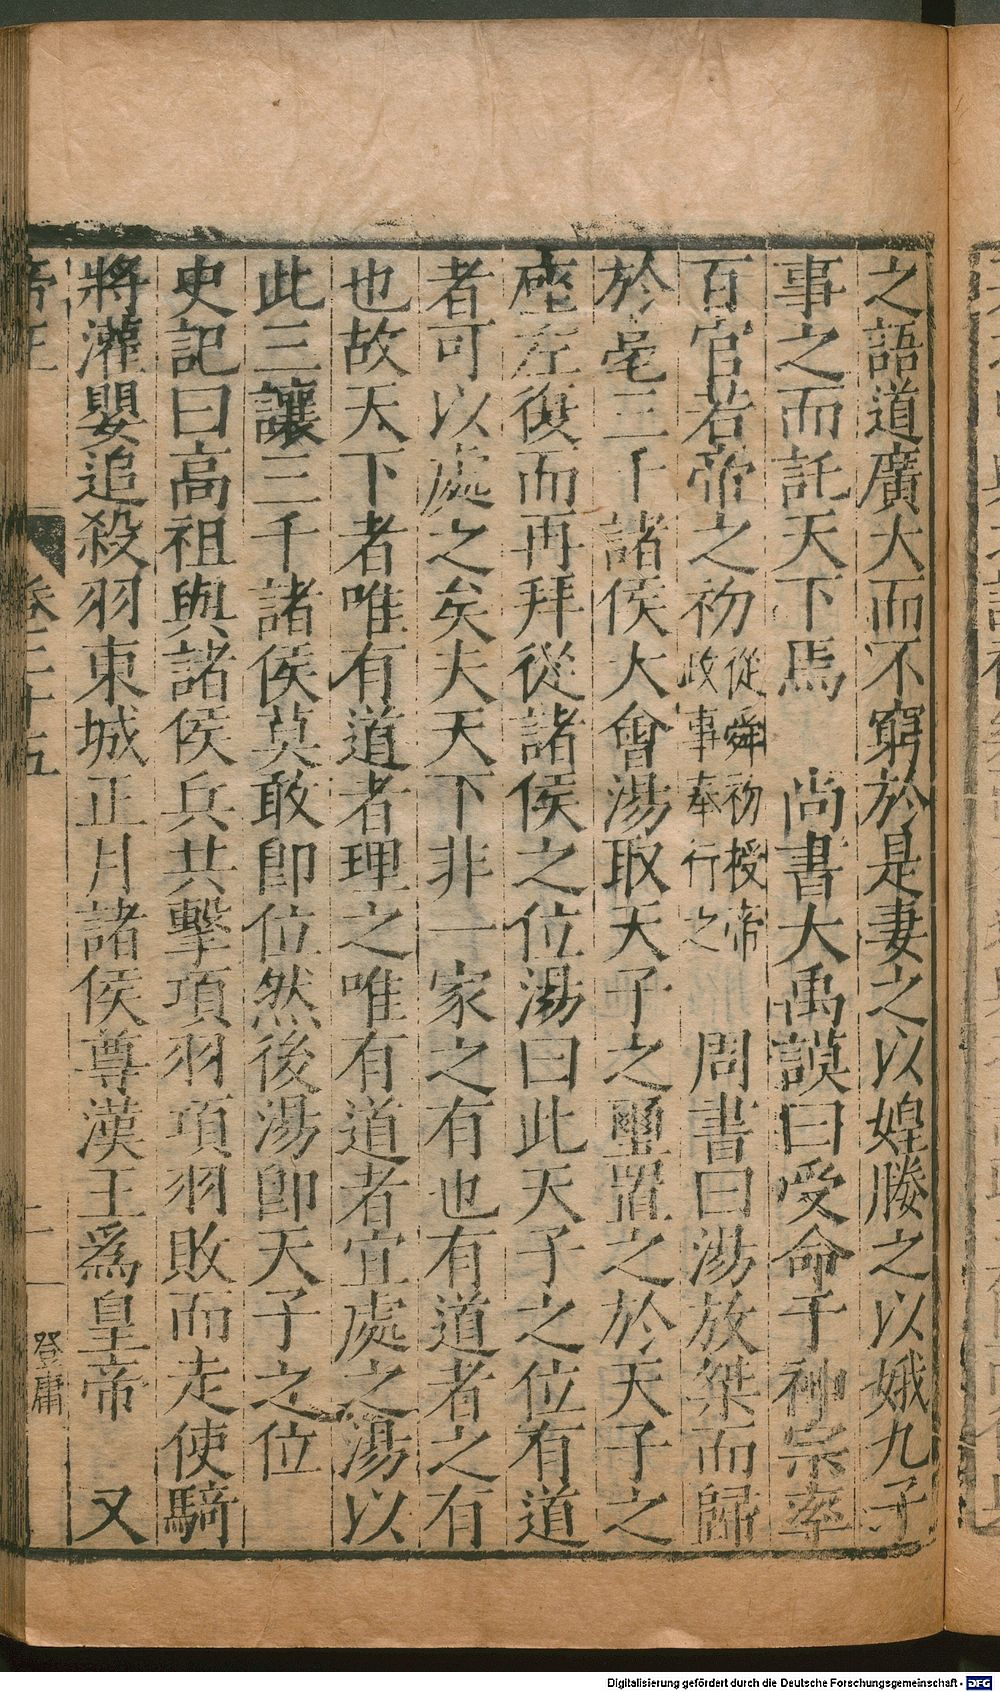 之語道廣大而不窮於是妻之以媓媵之以娥九子
事之而託天下焉　尚書大禹謨曰受命于神宗率
百官若帝之初從舜初授帝政事奉行之　周書曰湯放桀而歸
於亳三千諸侯大會湯取天子之璽置之於天子之
座左復而再拜從諸侯之位湯曰此天子之位有道
者可以處之矣夫天下非一家之有也有道者之有
也故天下者唯有道者理之唯有道者宜處之湯以
此三讓三千諸侯莫敢卽位然後湯卽天子之位
史記曰高祖與諸侯兵共擊項羽項羽敗而走使騎
將灌嬰追殺羽東城正月諸侯尊漢王爲皇帝　又
卷二十五　二　登庸
Digitalisierung gefördert durch die Deutsche Forschungsgemeinschaft - DFG